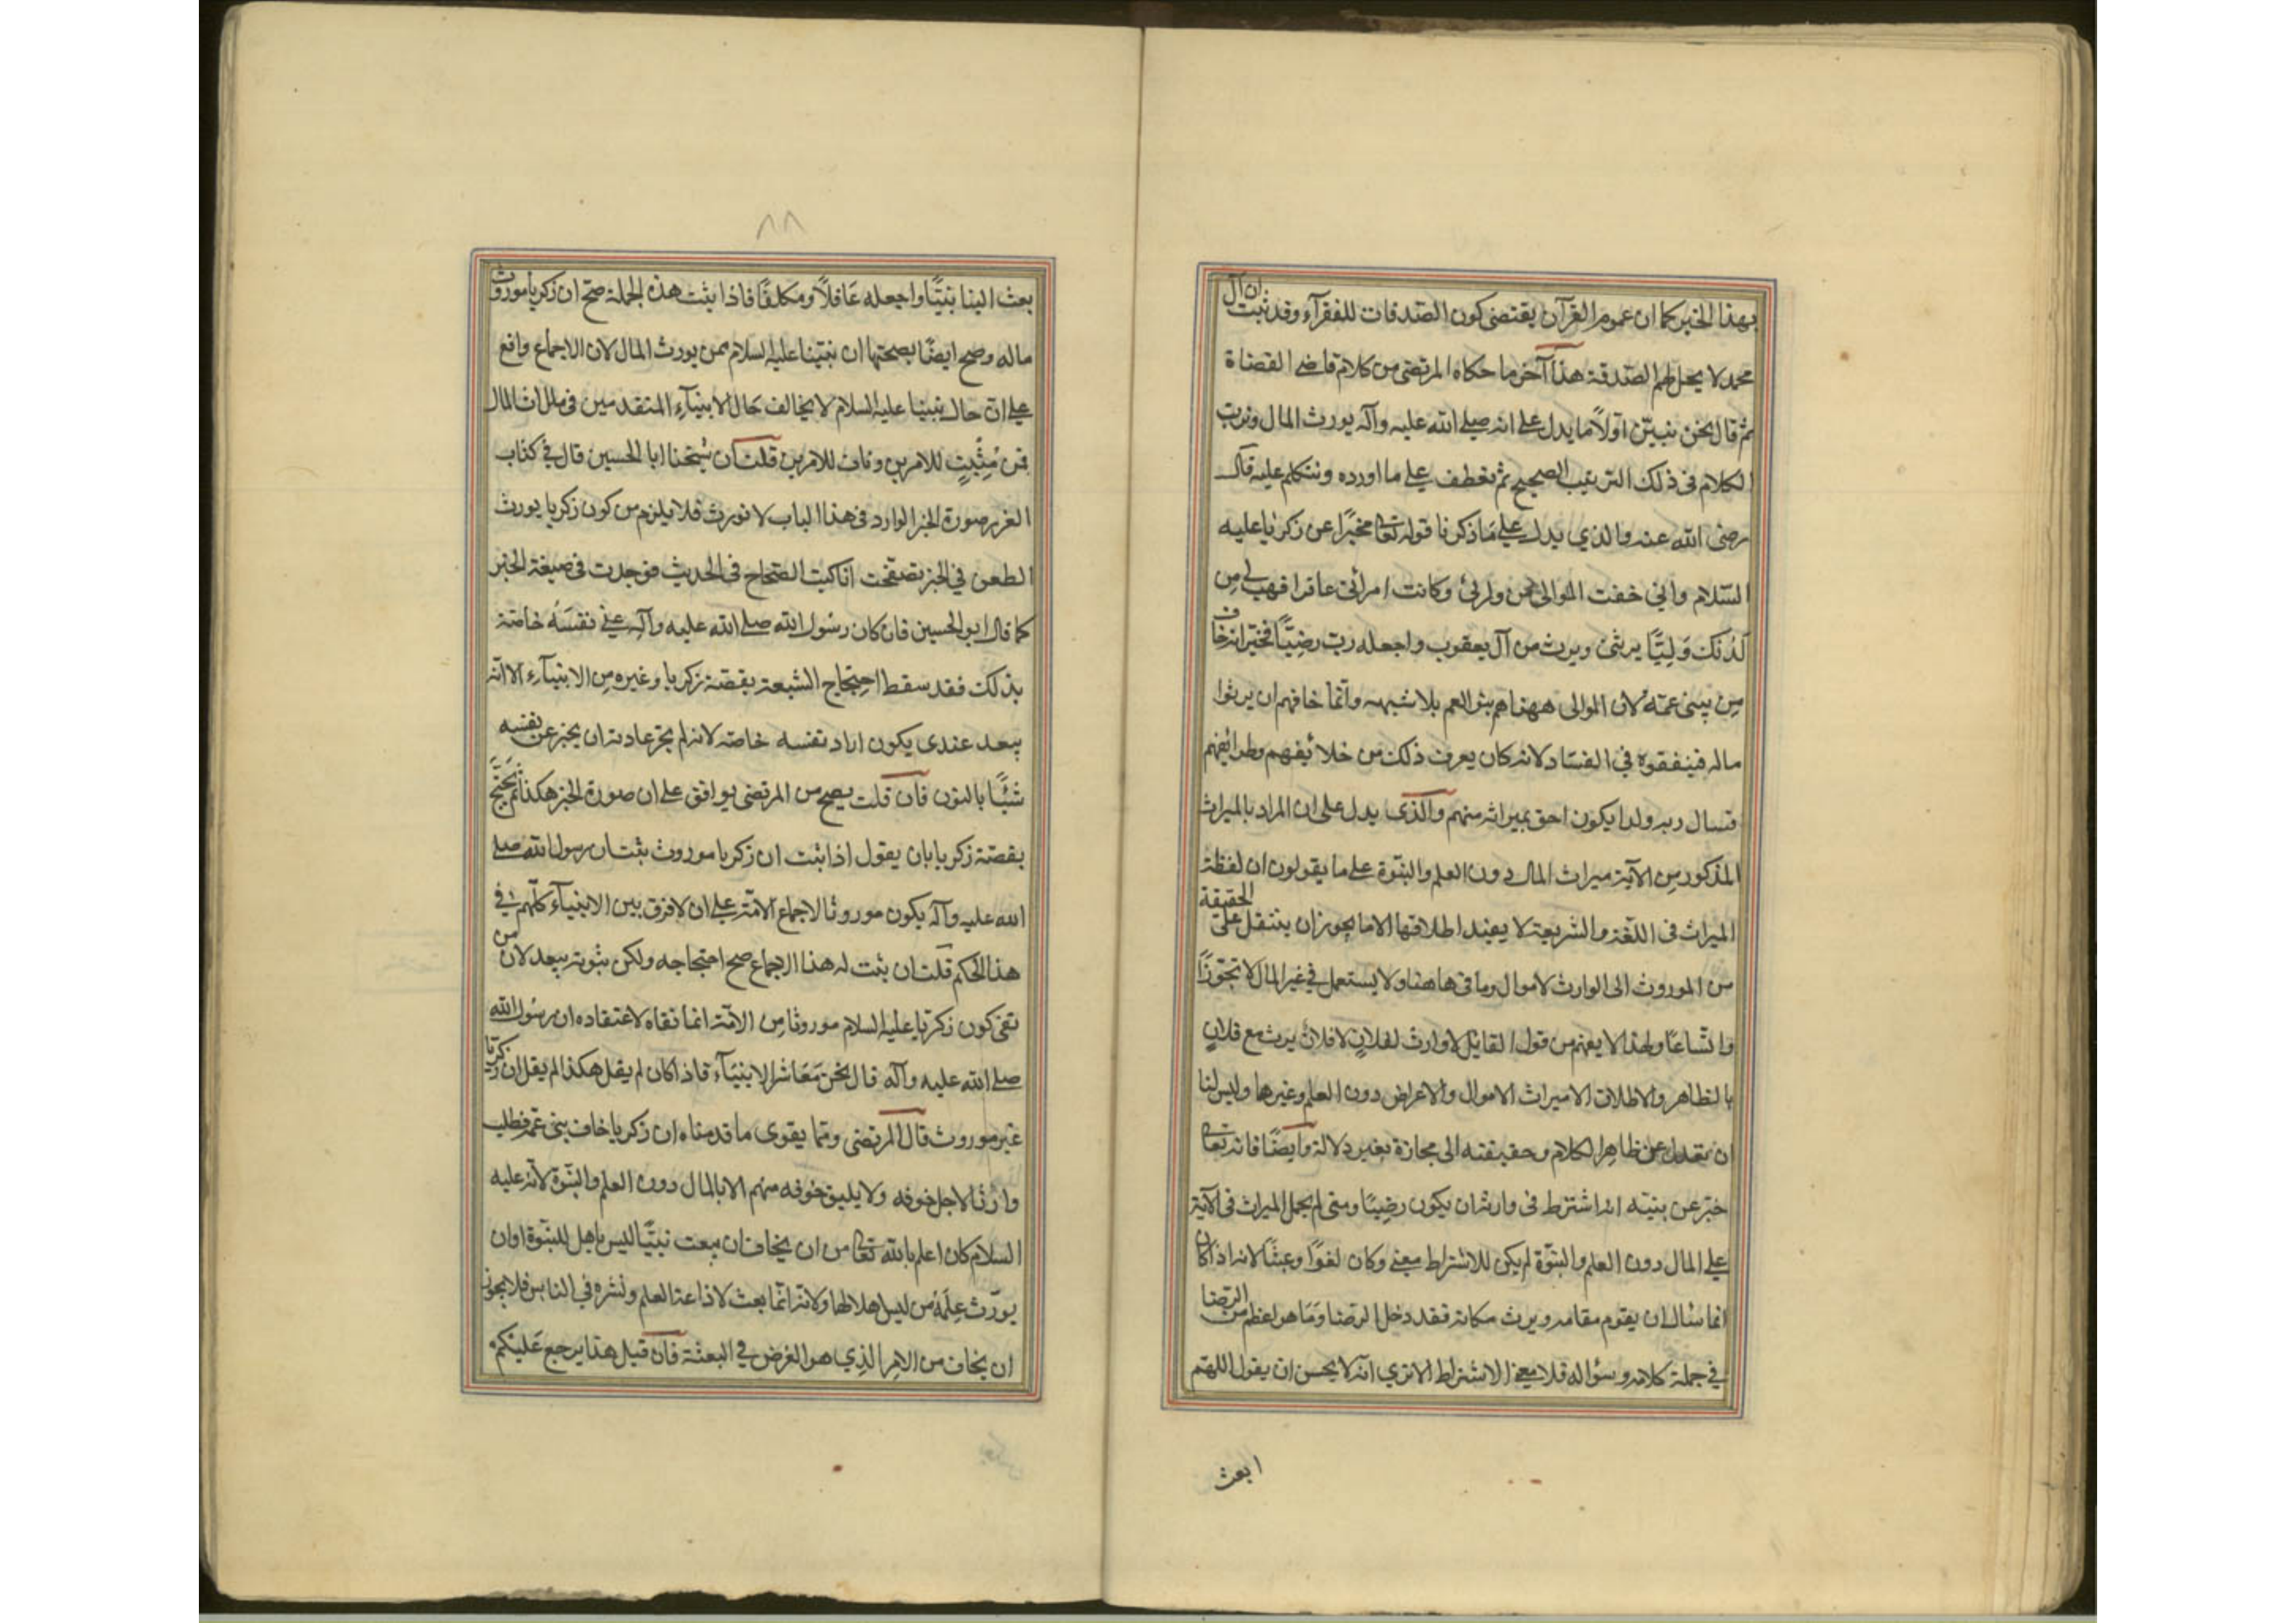 بهذا الخبر كما ان عموم القرآن يقتضى كون الصّدقات للفقرآء وقد ثبت ان آل
محمد لا يحل لهم الصّدقة هذا آخر ما حكاه المرتضى من كلام قاضى القضاة
ثم قال نحن نبيّن اوّلًا ما يدل على انه صلى الله عليه وآله يورث المال ونرتب
الكلام فى ذلك الترتيب الصحيح ثم نعطف على ما اورده ونتكلم عليه قال
رضى الله عنه والذي يدل على ما ذكرنا قوله تعالى مخبرًا عن زكريا عليه
السّلام واني خفت الموالى من ورائى وكانت امرأتى عاقرا فهب لى مِن
لدُنك وَلِيًّا يرثنى ويرث من آل يعقوب واجعله رب رضِيًّا فخبّر انه خاف
مِن بنى عمّه لان الموالى ههنا هم بنو العم بلا شبهه وانّما خافهم ان يرثوا
ماله فينفقوه في الفساد لانه كان يعرف ذلك من خلائقهم وطرائقهم
فسال ربه ولدا يكون احق بميراثه منهم والذى يدل على ان المراد بالميراث
المذكور مِن الآية ميراث المال دون العلم والنبّوة على ما يقولون ان لفظة
الميراث فى اللغة والشريعة لا يفيد اطلاقها الا ما يجوز ان ينتقل على الحقيقة
من الموروث الى الوارث لاموال وما فى هاهنا ولا يستعمل في غير المال لا تجوّزًا
واتّساعًا ولهذا لا يفهم من قول القايل لا وارث لفلانٍ لا فلانٌ يرث مع فلانٍ
بالظاهر والاطلاق الا ميراث الاموال والاعراض دون العلم وغيرها وليس لنا
ان نعدل عن ظاهِر الكلام وحقيقته الى مجازة بغير دلالة وايضًا فانه تعالى
خبّر عن بنيّه انه اشترط فى وارثه ان يكون رضِيًا ومتى لم يحمل الميراث فى الآية
على المال دون العلم والنبّوة لم يكن للاشتراط معنى وكان لغوًا وعبثًا لانه اذا كان
انما سأل ان يقوم مقامه ويرث مكانه فقد دخل الرضا وَمَا هو اعظم من الرّضا
في جملة كلامه وسؤاله فلا معنى الاشتراط الا ترى انّه لا يحسن ان يقول اللهم
ابعث
٨٨
بعث الينا نبيًّا واجعله عَاقلًا ومكلفًا فاذا ثبت هذه الجملة صّح ان زكريا موروث
ماله وصح ايضًا بصحتها ان نبيّنا عليه السلام ممن يورث المال لان الاجماع واقع
على ان حال نبينا عليه السلام لا يخالف حَال الانبيآءِ المتقدمين فى ملراث المال
فمن مُثبِتٍ للامرين ونافٍ للامرين قلت ان شيخنا ابا الحسين قال في كتاب
الغرر صورة الخبر الوارد فى هذا الباب لا نورث فلا يلزم من كون زكريا يورث
الطعن في الخبر تصفّحت انا كتب الصّحاح فى الحديث فوجدت فى صيغة الخبر
كما قال ابو الحسين فان كان رسُول الله صلى الله عليه وآله عنى نفسَهُ خاصّة
بذلك فقد سقط احتجاج الشيعة بقصّة زكريا وغيره مِن الانبيآءِ الا انّه
يبعد عندى يكون اراد نفسه خاصّه لانه لم يجر عادته ان يخبر عن نفسه
شيئًا بالنون فان قلت يصح من المرتضى يوافق على ان صورة الخبر هكذا ثم يحتجّ
بقصّة زكريا بان يقول اذا ثبت ان زكريا موروث ثبت ان رسول الله صلى
الله عليه وآله يكون موروثا لاجماع الامّة على ان لا فرق بين الانبيآء كلّهم في
هذا الحكم قلت ان ثبت له هذا الاجماع صح احتجاجه ولكن ثبوته يبعد لان من
نفى كون زكريّا عليه السلام موروثا مِن الامّة انما نفاه لاعتقاده ان رسُول الله
صلى الله عليه وآله قال نحن مَعَاشر الانبيَآء فاذا كان لم يقل هكذا لم يقل ان زكريّا
غير موروث قال المرتضى وممّا يقوى ما قدمناه ان زكريا خاف بنى عمّه فطلب
وارثا لاجل خوفه ولا يليق خوفه منهم الا بالمال دون العلم والنبّوة لانّه عليه
السلام كان اعلم بالله تعالى من ان يخاف ان يبعث نبيًّا ليس باهل للنبّوة او ان
يورّث عِلمَهُ من ليس اهلا لها ولانّه انّما بعث لاذاعة العلم ونشره في الناس فلا يجوز
ان يخاف من الامِر الذِي هو الغرض في البعثة فان قيل هذا يرجع عَليْكم